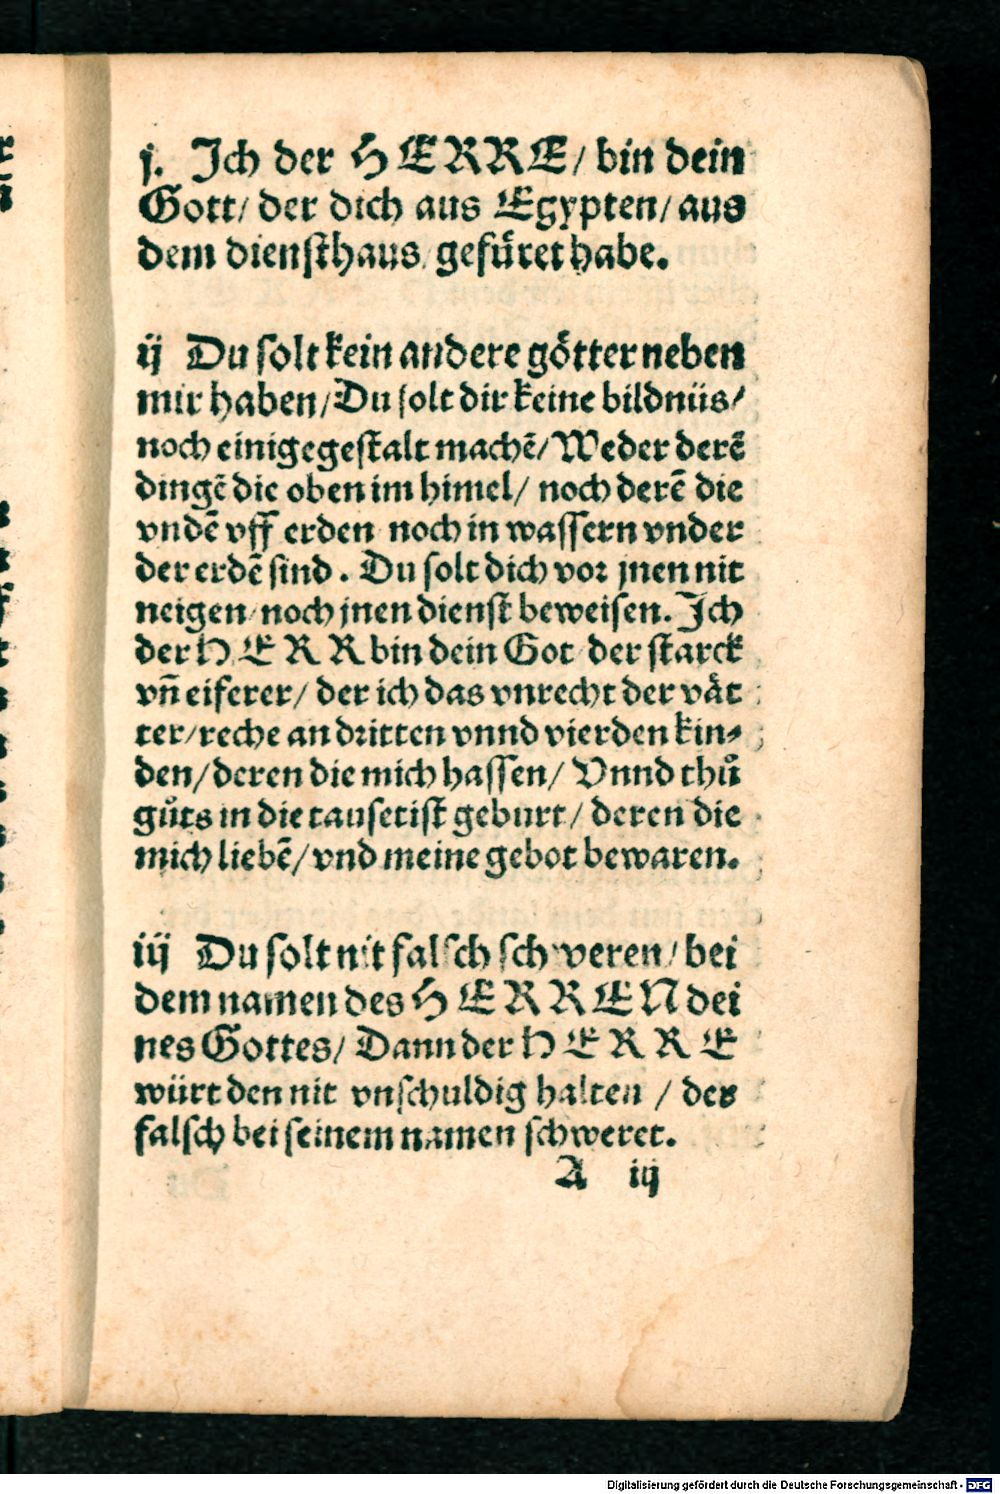 j. Ich der HERRE/ bin dein
Gott/ der dich aus Egypten/ aus
dem diensthaus gefüret habe.
ij Du solt kein andere götter neben
mir haben/ Du solt dir keine bildnüs/
noch einige gestalt machē/ Weder derē
dingē die oben im himel/ noch derē die
vndē vff erden noch in wassern vnder
der erdē sind. Du solt dich vor jnen nit
neigen/ noch jnen dienst beweisen. Ich
der HERR bin dein Got der starck
vñ eiferer/ der ich das vnrecht der vät
ter/ reche an dritten vnnd vierden kin-
den/ deren die mich hassen/ Vnnd thů
gůts in die tausetist geburt/ deren die
mich liebē/ vnd meine gebot bewaren.
iij Du solt nit falsch schweren/ bei
dem namen des HERREN dei
nes Gottes/ Dann der HERRE
würt den nit vnschuldig halten / des
falsch bei seinem namen schweret.
A iij
Digitalisierung gefördert durch die Deutsche Forschungsgemeinschaft - DFG